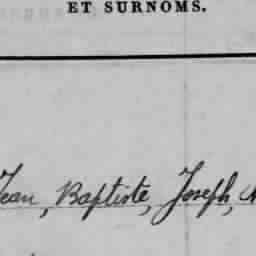 ET SURNOMS.
Jean, Baptiste, Joseph,